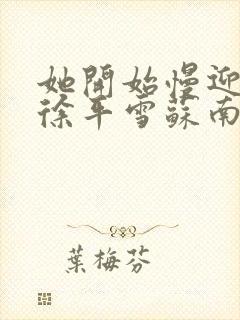 她開始慢迎
徐平雪蘇南
葉梅芬